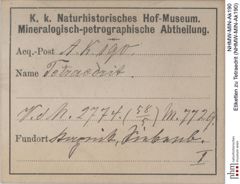 K. k. Naturhistorisches Hof-Museum.
Mineralogisch-petrographische Abtheilung.
Acq.-Post A.k.190.
Name Tetraedrit.
V.d.N. 2774. (58/5) M. 7729
Fundort Kapnik, Siebenb.
I
NHMW-MIN-Ak190
Etiketten zu Tetraedrit (NHMW-MIN-Ak190)
nhm